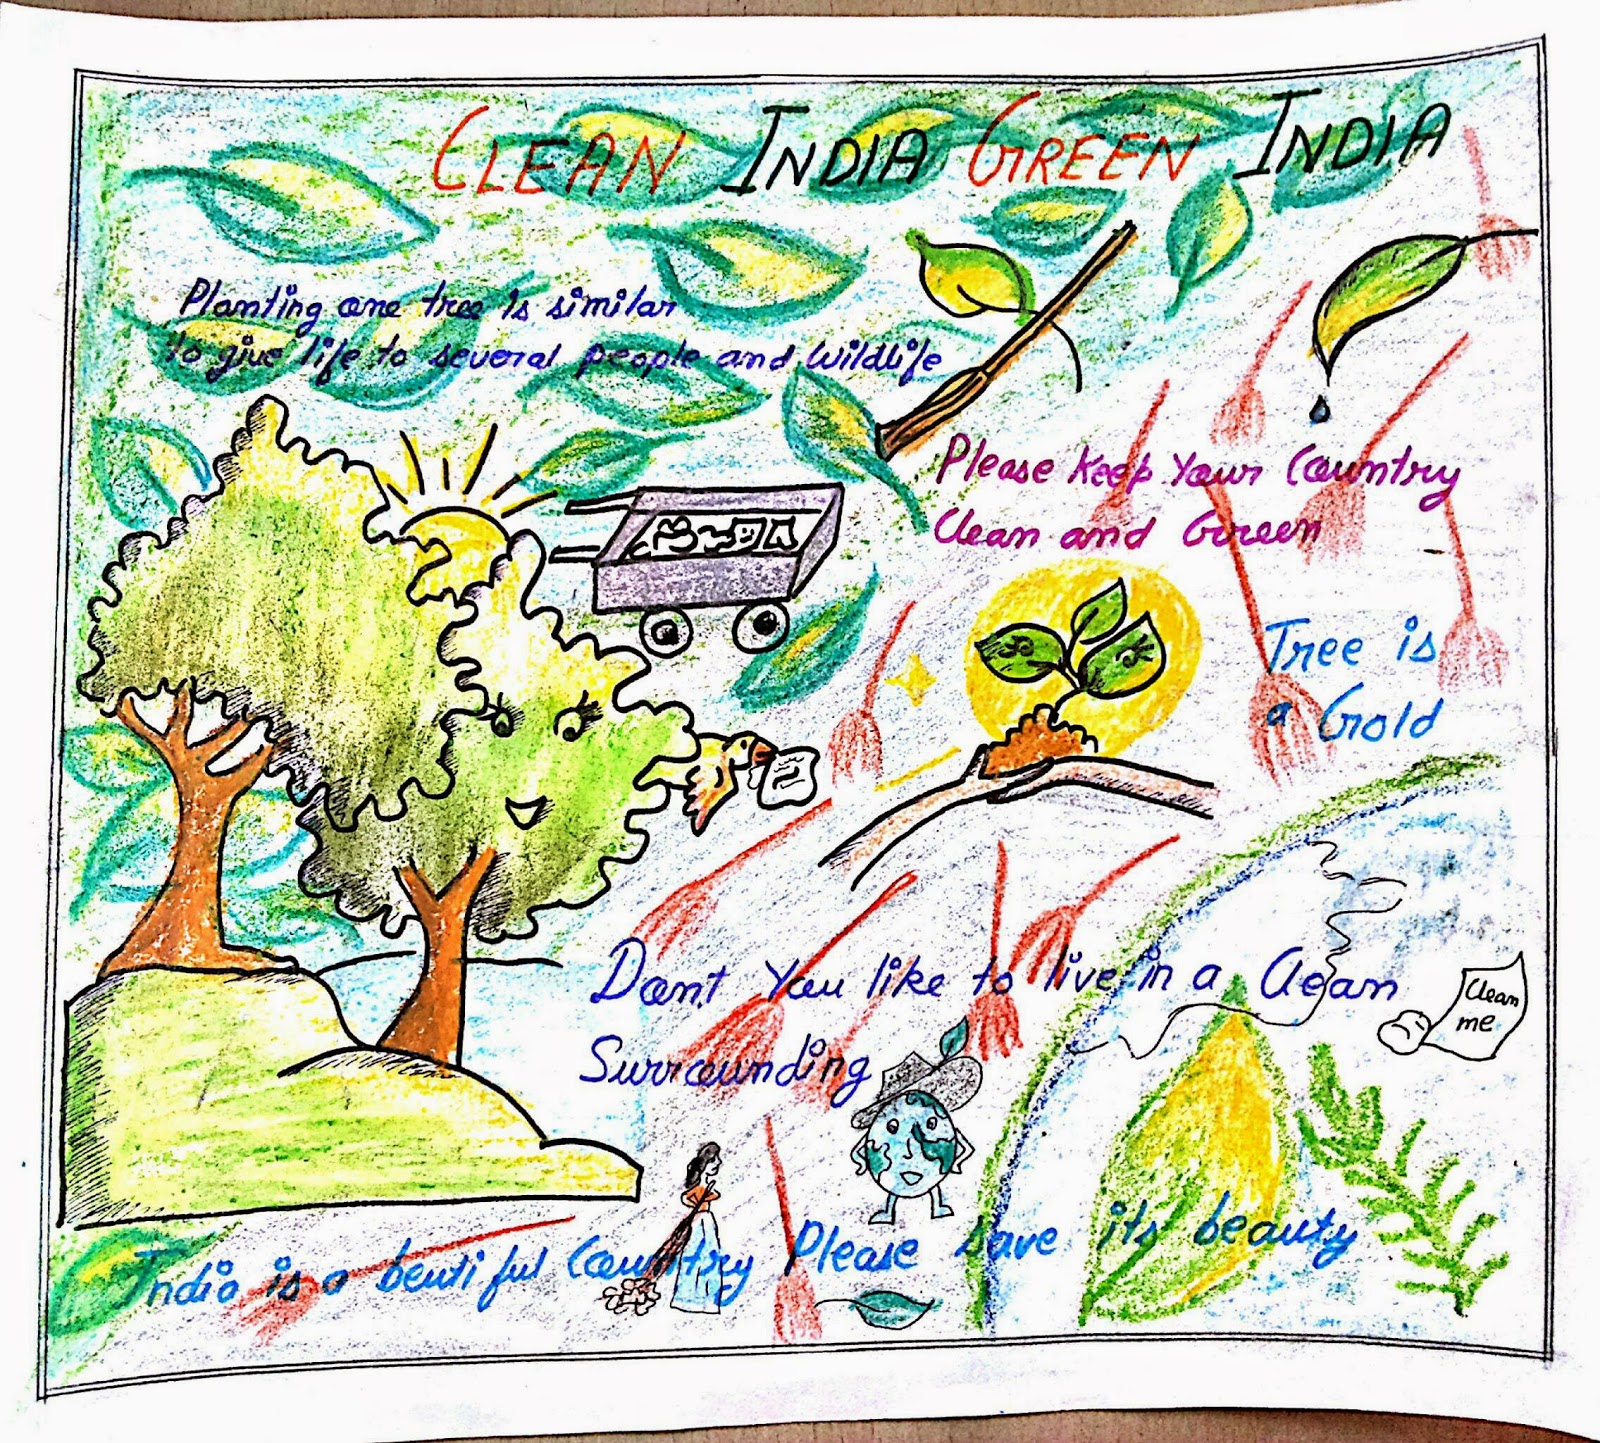 CLEAN INDIA GREEN INDIA
Planting one tree is similar
to give life to several people and Wildlife
Please Keep Your Country
Clean and Green
Tree is
a Gold
Dont You like to live in a Clean
Surrounding
Clean
me
India is a beutiful Country Please save its beauty